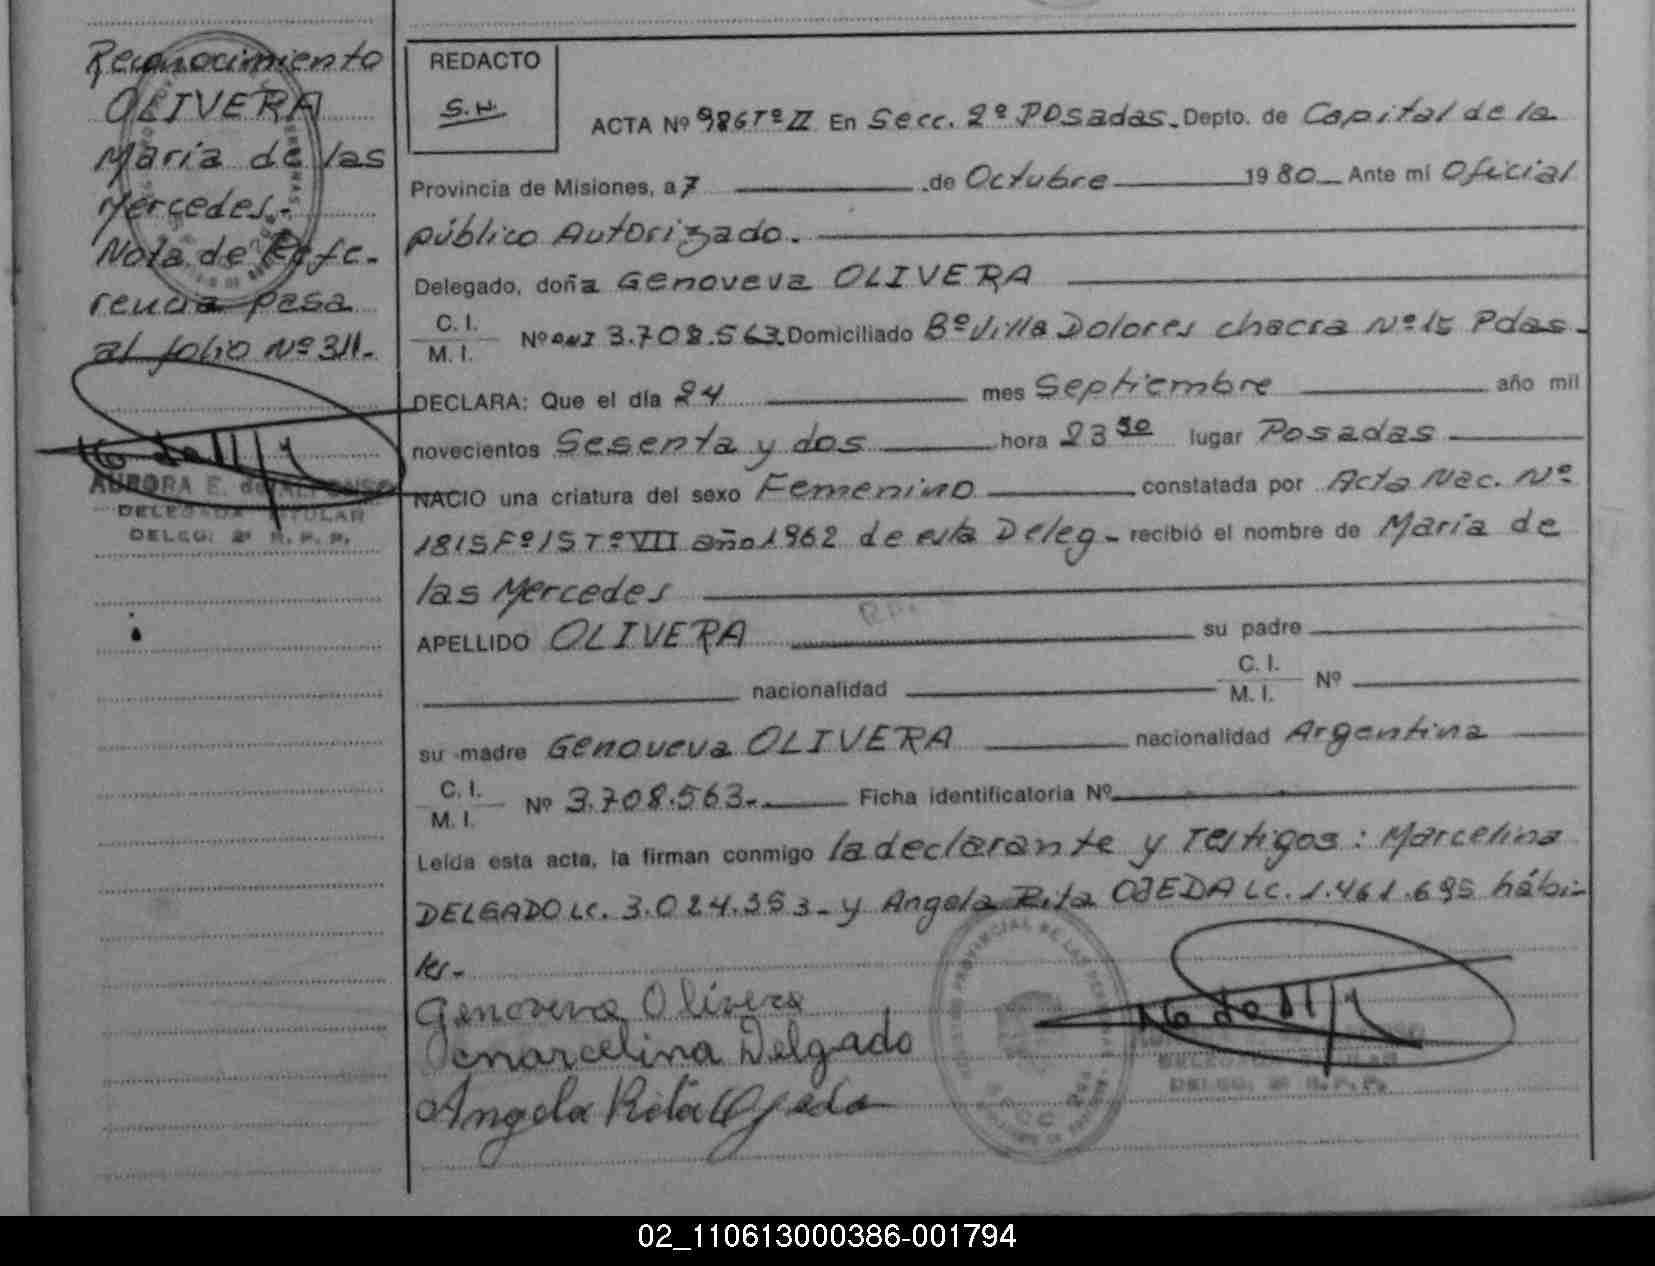 Reconocimiento
OLIVERA
María de las
Mercedes.-
Nota de Refe-
rencia pasa
al folio Nº 311.-
AURORA E. de ALFONSO
DELEGADA TITULAR
DELEG. 2ª R. P. P.
REDACTO
S.H.
ACTA Nº 986 Tº II En Secc. 2º Posadas. Depto. de Capital de la
Provincia de Misiones, a 7 de Octubre 1980 Ante mi Oficial
público Autorizado.
Delegado, doña Genoveva OLIVERA
C. I.
M. I. Nº DNI 3.708.563. Domiciliado Bº Villa Dolores chacra Nº 15 Pdas.
DECLARA: Que el día 24 mes Septiembre año mil
novecientos Sesenta y dos hora 23 30 lugar Posadas
NACIO una criatura del sexo Femenino constatada por Acta Nac. Nº
1815 Fº 15 Tº VII año 1962 de esta Deleg. recibió el nombre de María de
las Mercedes
APELLIDO OLIVERA su padre
nacionalidad C. I.
M. I. Nº
su madre Genoveva OLIVERA nacionalidad Argentina
C. I.
M. I. Nº 3.708.563.- Ficha identificatoria Nº
Leída esta acta, la firman conmigo la declarante y testigos: Marcelina
DELGADO LC. 3.024.353- y Angela Rita OJEDA LC. 1.461.695 hábi-
les.-
Genoveva Olivera
Marcelina Delgado
Angela Rita Ojeda
DELEGADA TITULAR
DELEG. 2ª R. P. P.
02_110613000386-001794